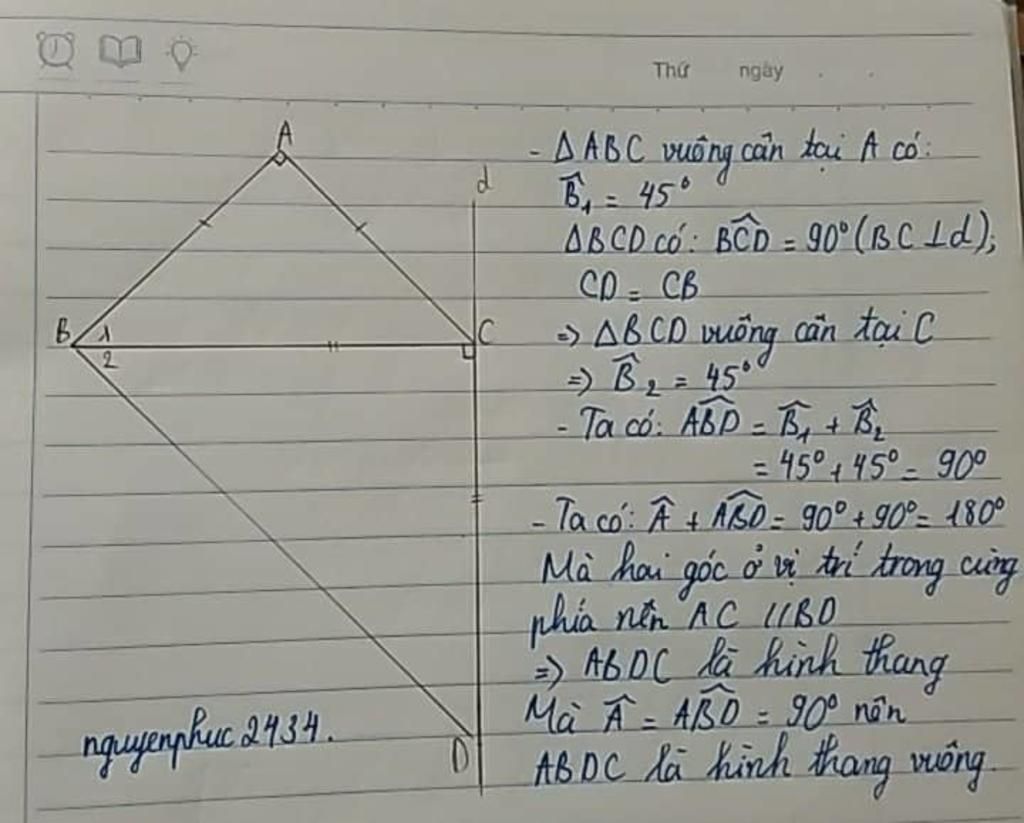 Thứ ngày
A
d
B 1
2
C
D
nguyenphuc2434.
- ΔABC vuông cân tại A có:
B̂₁ = 45°
ΔBCD có: B̂CD = 90° (BC ⊥ d);
CD = CB
=> ΔBCD vuông cân tại C
=> B̂₂ = 45°
- Ta có: ÂBD = B̂₁ + B̂₂
= 45° + 45° = 90°
- Ta có: Â + ÂBD = 90° + 90° = 180°
Mà hai góc ở vị trí trong cùng
phía nên AC // BD
=> ABDC là hình thang
Mà Â = ÂBD = 90° nên
ABDC là hình thang vuông.